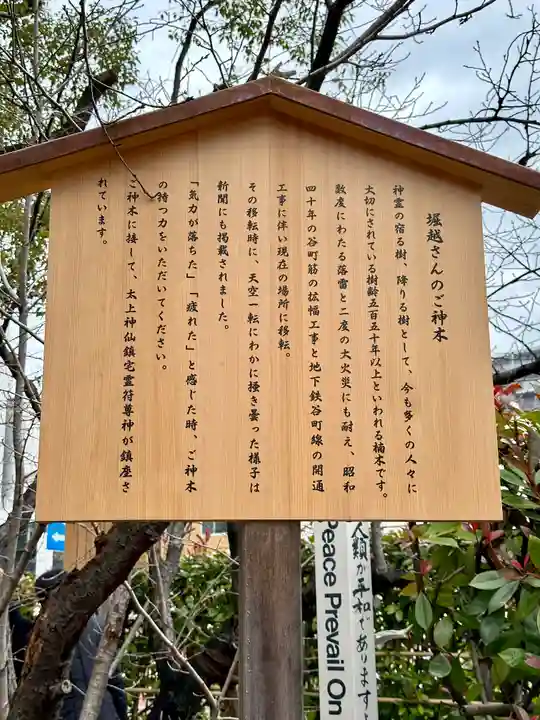 堀越さんのご神木
神霊の宿る樹、降りる樹として、今も多くの人々に
大切にされている樹齢五百五十年以上といわれる楠木です。
数度にわたる落雷と二度の大火災にも耐え、昭和
四十年の谷町筋の拡幅工事と地下鉄谷町線の開通
工事に伴い現在の場所に移転。
その移転時に、天空一転にわかに掻き曇った様子は
新聞にも掲載されました。
「気力が落ちた」「疲れた」と感じた時、ご神木
の持つ力をいただいてください。
ご神木に接して、太上神仙鎮宅霊符尊神が鎮座さ
れています。
Peace Prevail On
人類が平和でありますよ